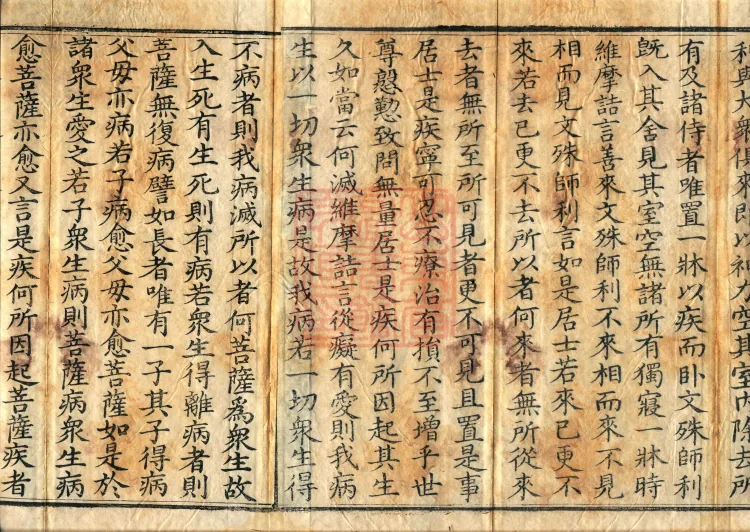 利與大衆俱來即以神力空其室內除去所
有及諸侍者唯置一牀以疾而臥文殊師利
既入其舍見其室空無諸所有獨寢一牀時
維摩詰言善來文殊師利不來相而來不見
相而見文殊師利言如是居士若來已更不
來若去已更不去所以者何來者無所從來
去者無所至所可見者更不可見且置是事
居士是疾寧可忍不療治有損不至增乎世
尊慇懃致問無量居士是疾何所因起其生
久如當云何滅維摩詰言從癡有愛則我病
生以一切衆生病是故我病若一切衆生得
不病者則我病滅所以者何菩薩爲衆生故
入生死有生死則有病若衆生得離病者則
菩薩無復病譬如長者唯有一子其子得病
父母亦病若子病愈父母亦愈菩薩如是於
諸衆生愛之若子衆生病則菩薩病衆生病
愈菩薩亦愈又言是疾何所因起菩薩疾者